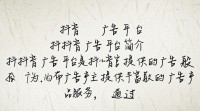 抖音 广告平台
抖抖音广告平台简介
抖抖音广告平台是抖音官提供的广告
为广告主提供丰富的广告产
品服务， 通过